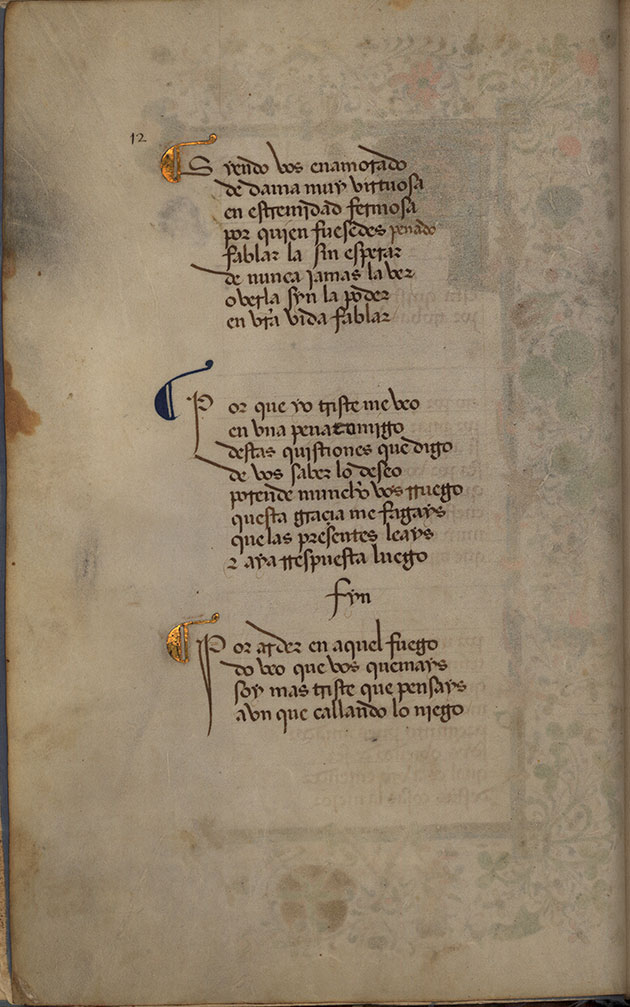 12
Syendo vos enamorado
de dama muy virtuosa
en estremidad fermosa
por quien fuesedes penado
fablar la sin esperar
de nunca jamas la ver
o verla syn la poder
en vra vida fablar
Por que yo triste me veo
en vna pena comigo
destas quistiones que digo
de vos saber lo deseo
porende muncho vos rruego
questa gracia me fagays
que las presentes leays
z aya rrespuesta luego
fyn
Por arder en aquel fuego
do veo que vos quemays
soy mas triste que pensays
avn que callando lo niego